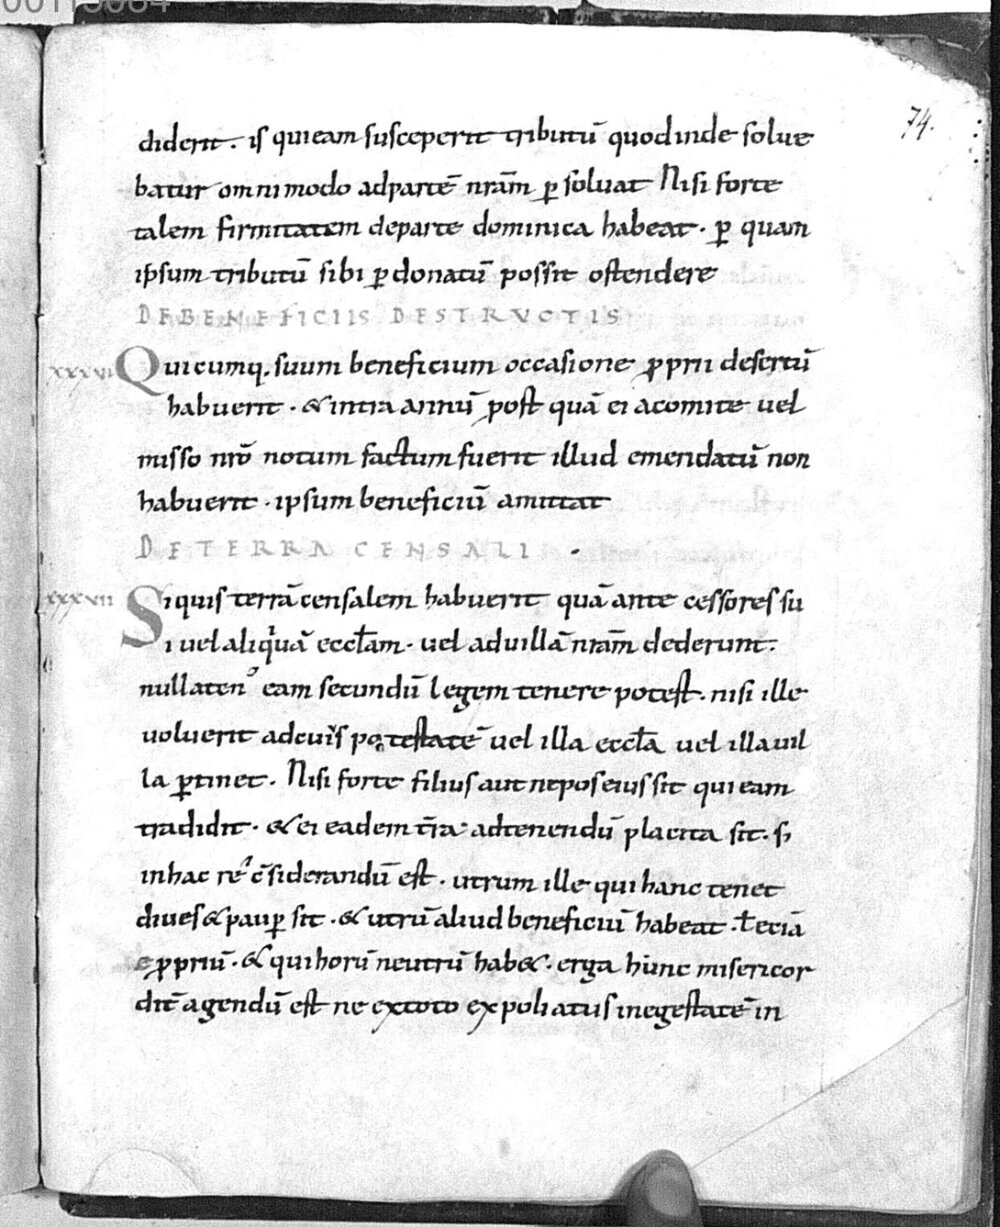 74.
diderit. is qui eam susceperit tributū quod inde solue
batur omnimodo ad partē nrām p̱ soluat Nisi forte
talem firmitatem de parte dominica habeat. p̱ quam
ipsum tributū sibi p̱donatū possit ostendere
DE BENEFICIIS DESTRVCTIS
XXXVI Quicumq. suum beneficium occasione ꝓprii desertū
habuerit. & intra annū post quā ei a comite vel
misso nrō notum factum fuerit illud emendatū non
habuerit. ipsum beneficiū amittat
DE TERRA CENSALI.
XXXVII Si quis terrā censalem habuerit quā antecessores su
i vel aliquā eccłam. vel ad villā nrām dederunt.
nullaten᾿ eam secundū legem tenere potest. nisi ille
voluerit ad cuiꝰs potestatē vel illa eccła vel illa vil
la p̱tinet. Nisi forte filius aut nepos eius sit qui eam
tradidit. & ei eadem tr̄a ad tenendū placita sit. s;
in hac re c̄siderandū est. utrum ille qui hanc tenet
dives & paup̱ sit. & utrū aliud beneficiū habeat. ł etiā
ꝓpriū. & qui horū neutrū hab&. erga hunc misericor
dit̄ agendū est ne ex toto expoliatus in egestatē in